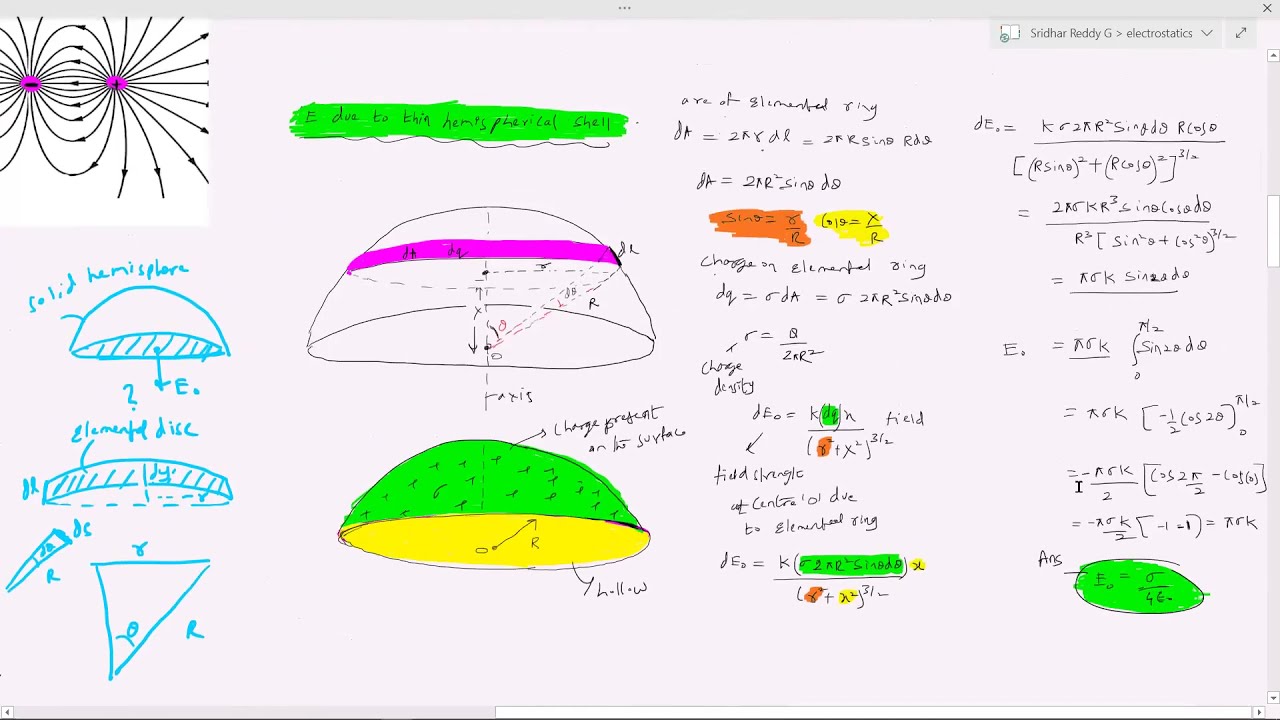 Sridhar Reddy G > electrostatics
E due to thin hemispherical shell
solid hemisphere
E₀
?
Elemental disc
dy
r
ds
R
r
θ
R
dA dq
r
dθ
R
x
θ
O
axis
charge present
on the surface
+ + + + + + σ + + + + + +
O R
hollow
are of Elemental ring
dA = 2πr dl = 2πR sinθ Rdθ
dA = 2πR² sinθ dθ
sinθ = r/R cosθ = x/R
charge on elemental ring
dq = σdA = σ 2πR² sinθdθ
σ = Q/2πR²
charge
density
dE₀ = K(dq)x/(r²+x²)^3/2 field
field strength
at centre 'o' due
to Elemental ring
dE₀ = K(σ2πR²sinθdθ)x/(r²+x²)^3/2
dE₀ = Kσ2πR²sinθdθ Rcosθ/[(Rsinθ)²+(Rcosθ)²]^3/2
= 2πσKR³ sinθcosθdθ/R³[sin²θ+cos²θ]^3/2
= πσK sin2θdθ
E₀ = πσK ∫₀^π/2 sin2θdθ
= πσK [-1/2 cos2θ]₀^π/2
= -πσK/2 [cos2π/2 - cos(0)]
= -πσK/2 [-1-1] = πσK
Ans
E₀ = σ/4ε₀